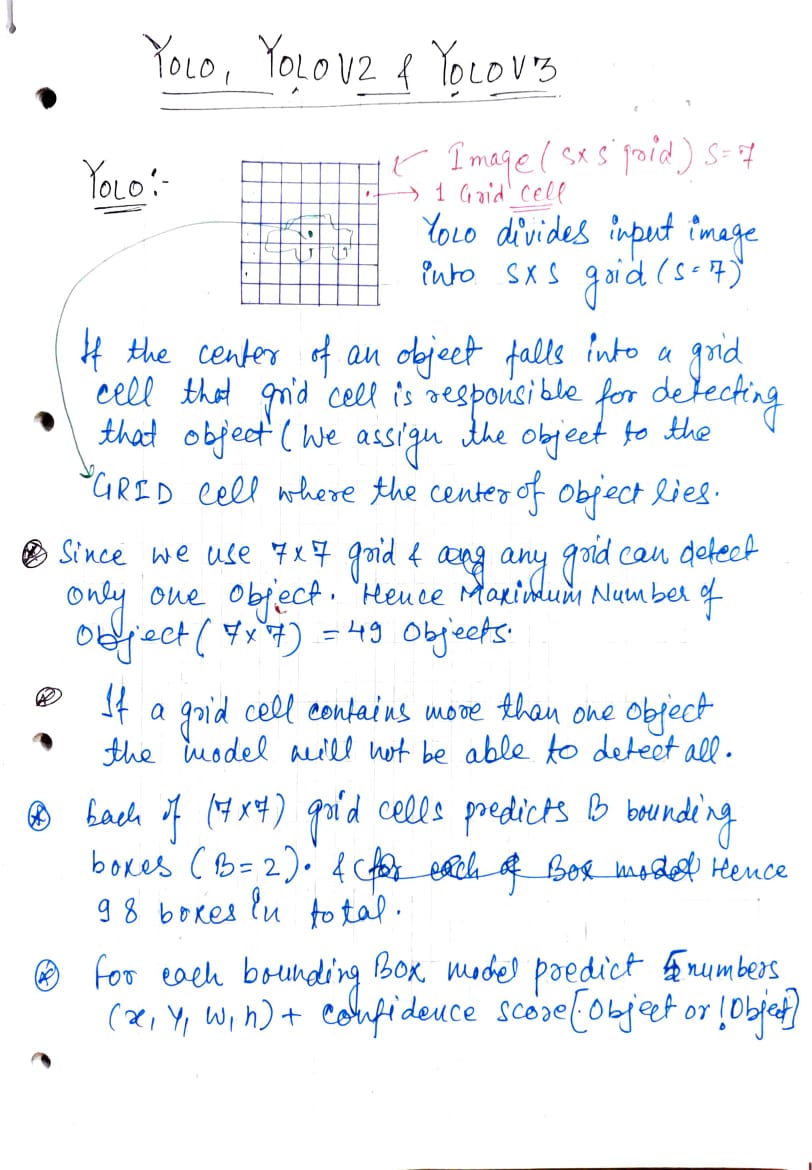 YOLO, YOLO V2 & YOLO V3
YOLO:-
Image (S×S grid) S=7
→ 1 Grid Cell
YOLO divides input image
into S×S grid (S=7)
If the center of an object falls into a grid
cell that grid cell is responsible for detecting
that object (We assign the object to the
GRID cell where the center of object lies.
Since we use 7×7 grid & any any grid can detect
only one object. Hence Maximum Number of
Object (7×7) = 49 Objects.
If a grid cell contains more than one object
the model will not be able to detect all.
Each of (7×7) grid cells predicts B bounding
boxes (B=2). & (for each of Box model Hence
98 boxes in total.
For each bounding Box model predict 5 numbers
(x, y, w, h) + confidence score [Object or !Object]